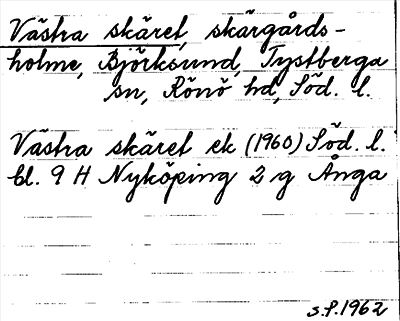 Västra skäret, skärgårds-
holme, Björksund, Tystberga
sn, Rönö hd, Söd. l.
Västra skäret ek (1960) Söd. l.
bl. 9 H Nyköping 2 g Ånga
s.P.1962